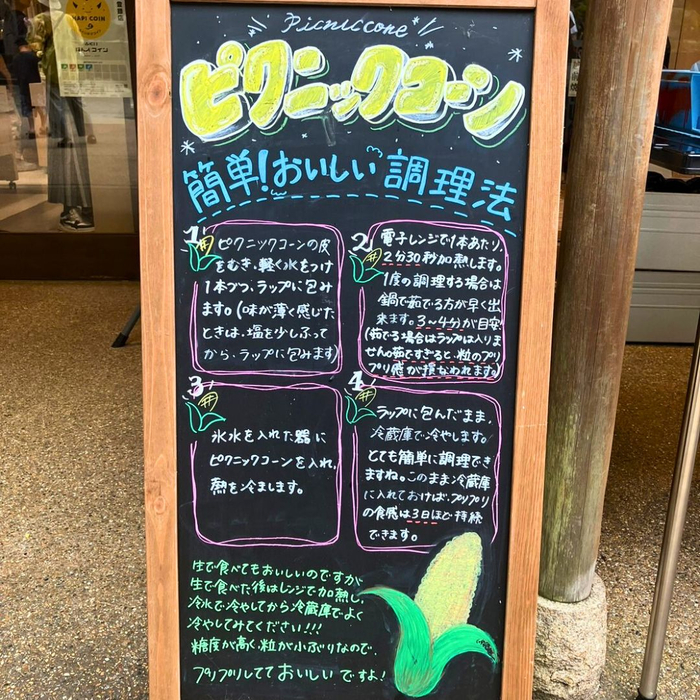 HAPI COIN
Picniccone
ピクニックコーン
簡単!おいしい調理法
1
ピクニックコーンの皮
をむき、軽く水をつけ
1本づつ、ラップに包み
ます。(味が薄く感じた
ときは、塩を少しふって
から、ラップに包みます)
2
電子レンジで1本あたり、
2分30秒加熱します。
1度の調理する場合は
鍋で茹でる方が早く出
来ます。3〜4分が目安
(茹でる場合はラップは入りま
せんの茹ですぎると、粒のプリ
プリ感が損なわれます。)
3
氷水を入れた器に
ピクニックコーンを入れ、
熱を冷まします。
4
ラップに包んだまま,
冷蔵庫で冷やします。
とても簡単に調理でき
ますね。このまま冷蔵庫
に入れておけば、プリプリ
の食感は3日ほど持続
できます。
生で食べてもおいしいのですが
生で食べた後はレンジで加熱し、
冷水で冷やしてから冷蔵庫でよく
冷やしてみてください!!!
糖度が高く、粒が小ぶりなので、
プリプリしてておいしいですよ!